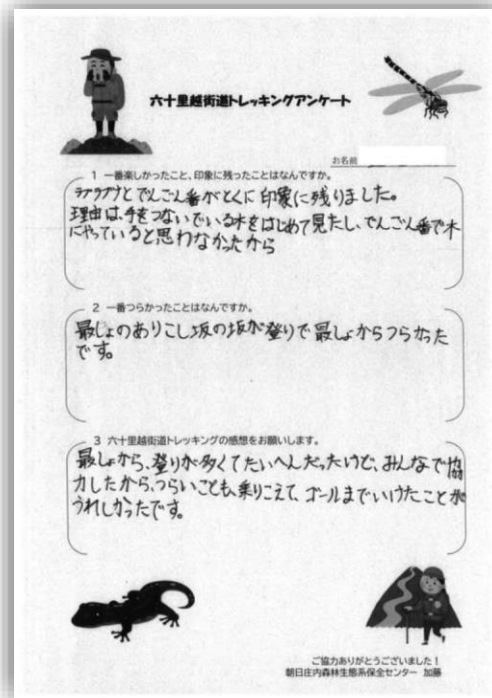 六十里越街道トレッキングアンケート
お名前
1 一番楽しかったこと、印象に残ったことはなんですか。
ラブラブナとでんごん番がとくに印象に残りました。
理由は、手をつないでいる木をはじめて見たし、でんごん番で木
にやっていると思わなかったから
2 一番つらかったことはなんですか。
最しょのありこし坂の坂が登りで最しょからつらかった
です。
3 六十里越街道トレッキングの感想をお願いします。
最しょから、登りが多くてたいへんだったけど、みんなで協
力したから、つらいことも、乗りこえて、ゴールまでいけたことが
うれしかったです。
ご協力ありがとうございました！
朝日庄内森林生態系保全センター 加藤